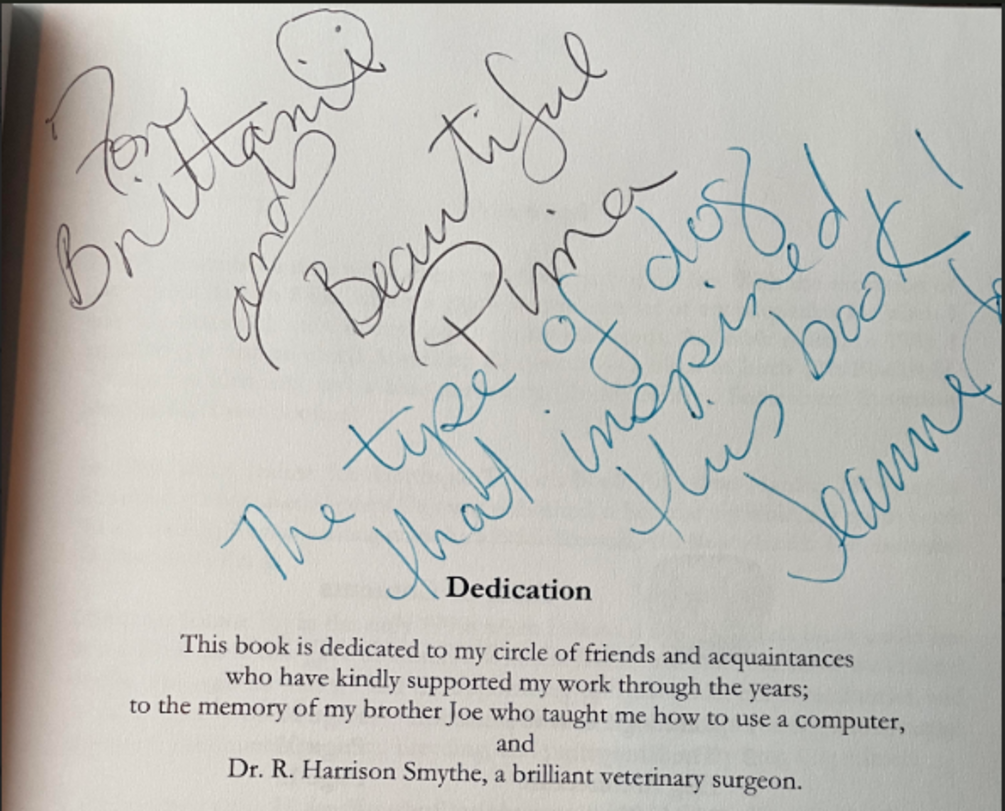 For
Brittani
and
Beautiful
Puma
The type of dog
that inspired
this book!
Jeanne
Dedication
This book is dedicated to my circle of friends and acquaintances
who have kindly supported my work through the years;
to the memory of my brother Joe who taught me how to use a computer,
and
Dr. R. Harrison Smythe, a brilliant veterinary surgeon.